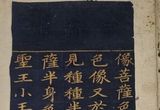 像菩薩
色像又於
見種種形
薩半身色
聖王小王